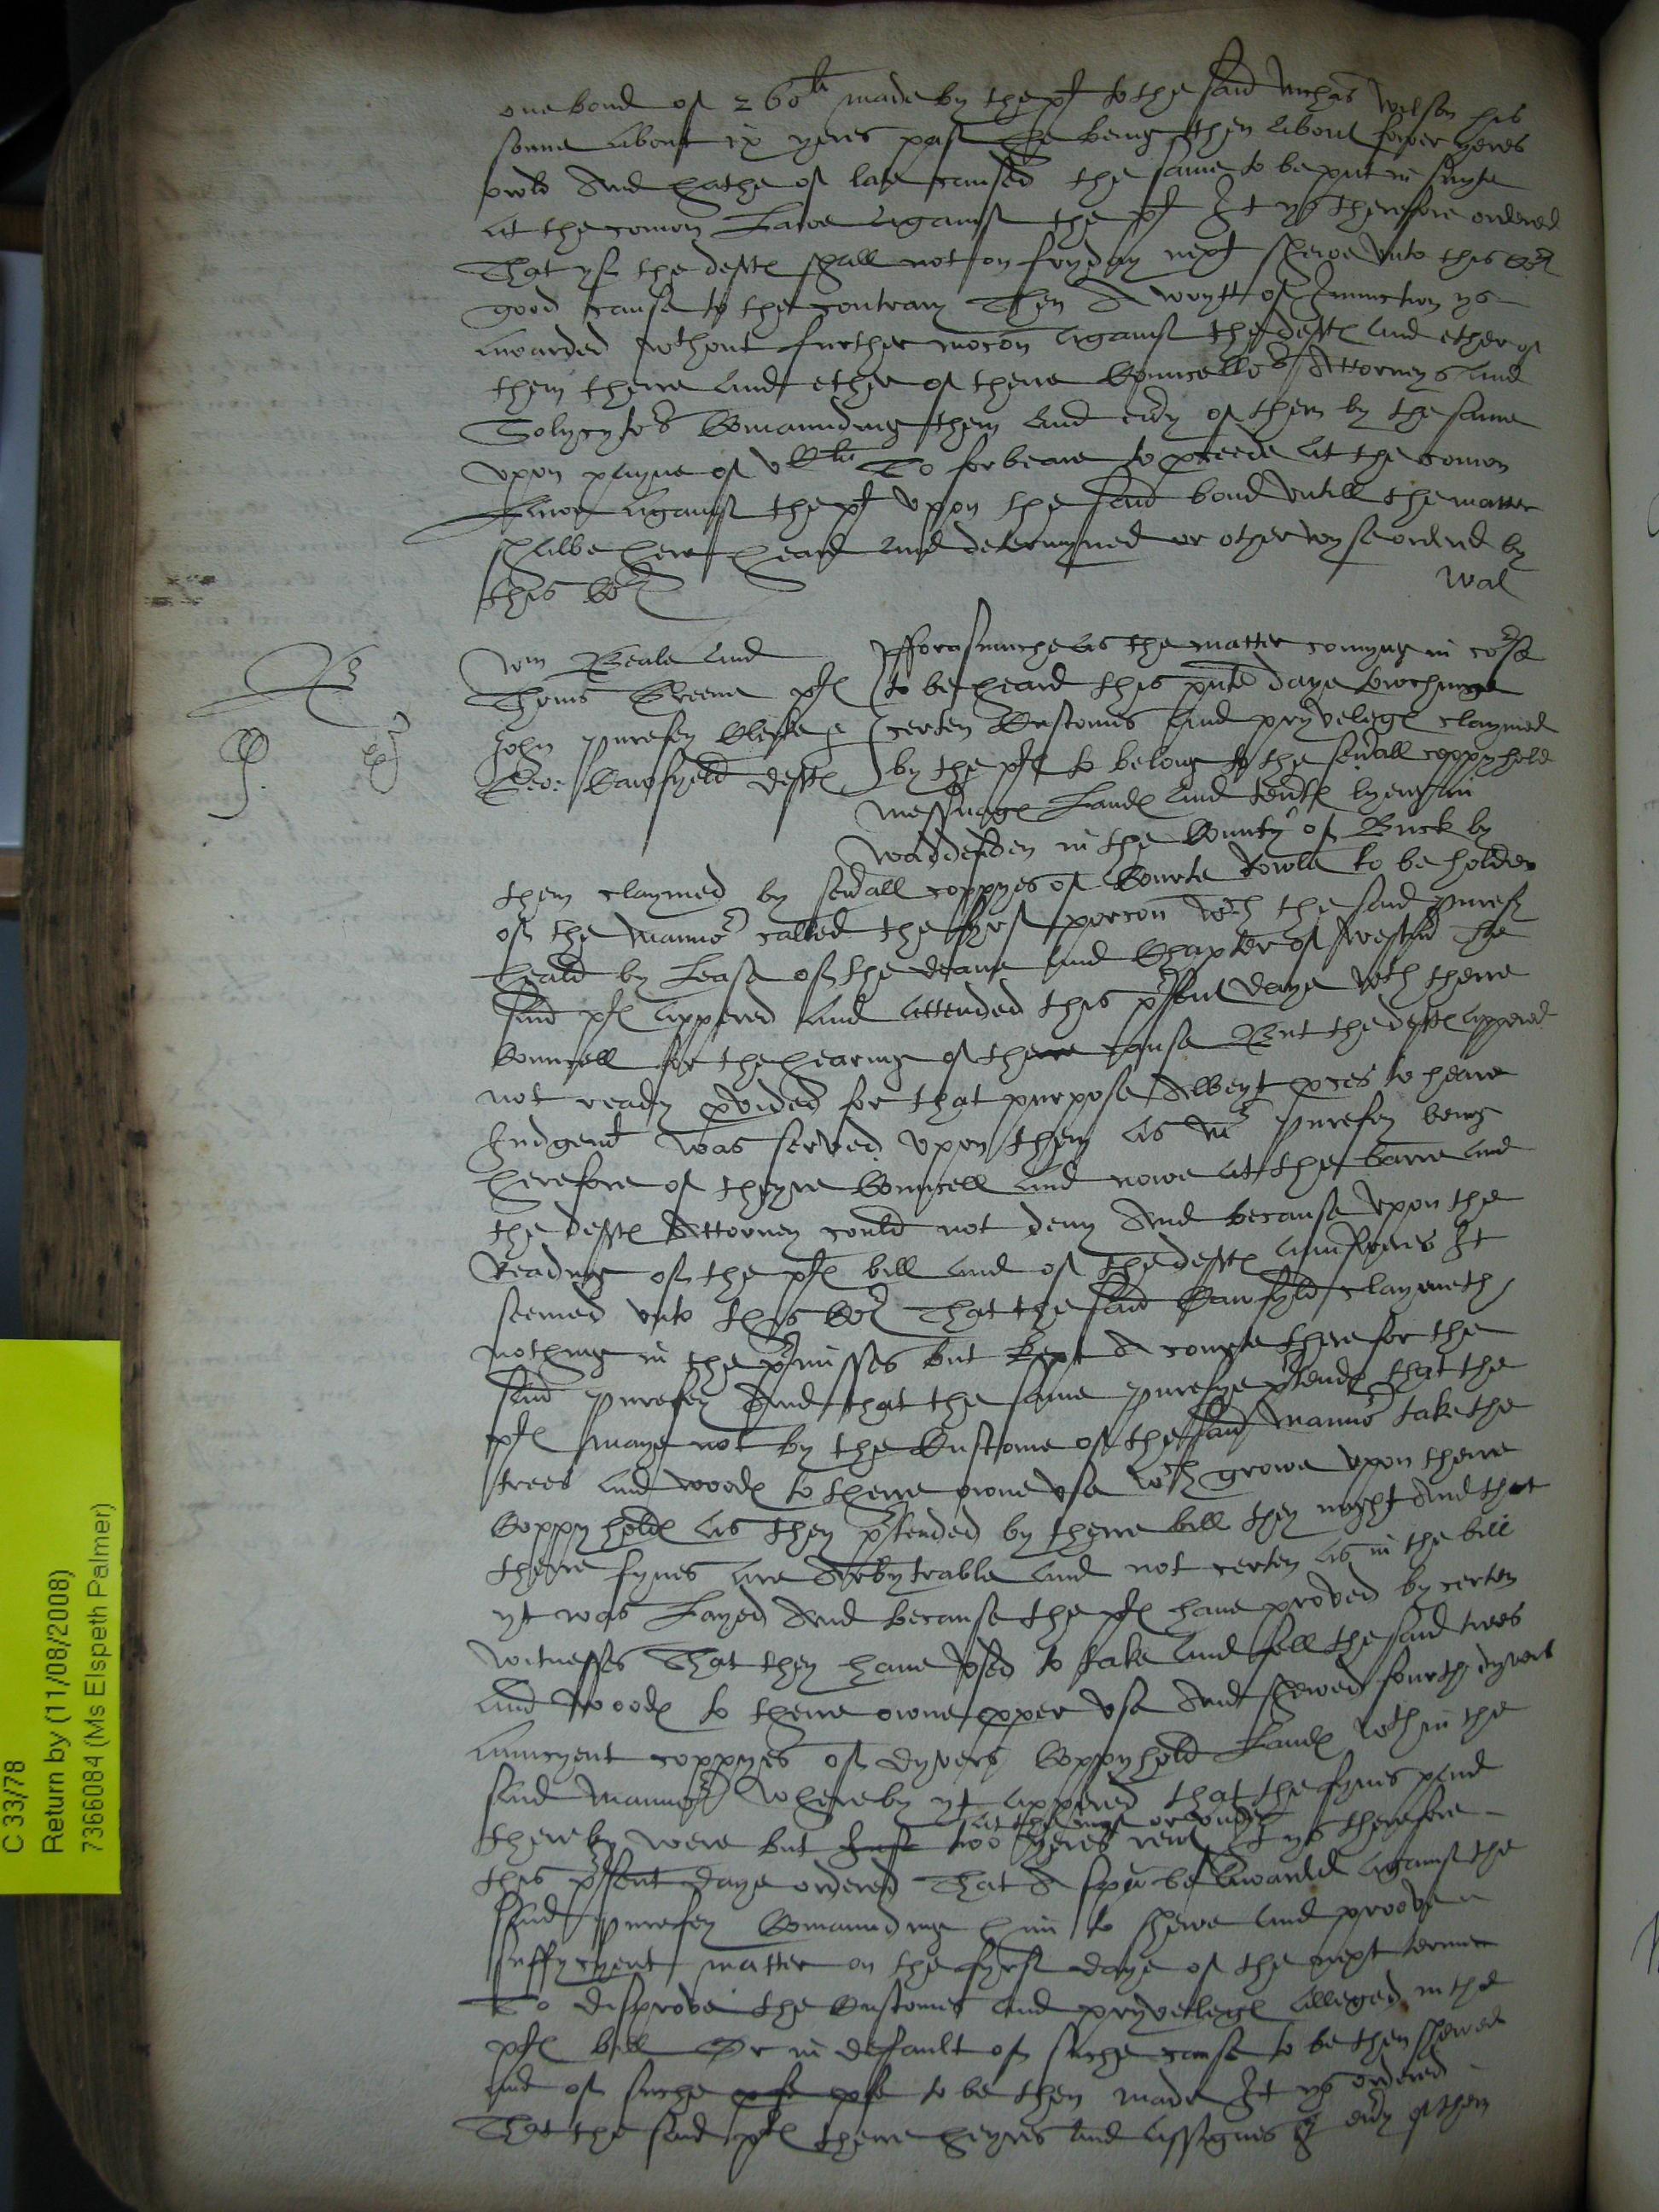 one bond of 260li made by the pt to the said Nichas Wilson his
sonne about ix yeres past he being then about fower yeres
owld And hathe of late caused the same to be put in suyte
at the comon Lawe against the pt It ys therefore ordered
That yf the deftes shall not on fryday next shewe unto this Cort
good cause to the contrary Then A wrytt of Iniunction ys
awarded without further mocon against the deftes and ether of
them theire and ether of theire Councellors Attorneys and
Solycytors Comaunding them and evry of them by the same
upon payne of vCli To forbeare to pceede at the comon
Lawe against the pt upon the said bond untill the matter
shalbe here heard and determyned or otherwyse ordered by
this Cort
Wal
Wm Beale and
Thoms Greene ptes
John purefey Clerke &
Geo: Cawfyeld deftes
fforasmuche as the matter comyng in corse
to be heard this pnte daye towchinge
certen Customes and pryveleges claymed
by the ptes to belong to the sevall coppyhold
messuages Landes and tentes lyeng in
Waddesden in the County of Buck by
them claymed by sevall coppyes of Courte Rowle to be holden
of the Mannor called the fyrst porcon wch the said purefey
heald by Lease of the deane and Chapter of Westmr The
said ptes appered and attended this psent daye with theire
Councell for the hearing of the cause But the deftes appered
not ready pvided for that purpose Albeyt pces to heare
Iudgent was served upon them as Mr purefey being
heretofore of theyre Councell and nowe at the barre and
the deftes Attorney could not deny And because upon the
Reading of the ptes bill and of the deftes aunsweres It
seemed unto this Cort That the said Cawfyld claymeth
nothing in the pmisses but kept A courte there for the
said purefey And that the same purefey ptendes that the
ptes maye not by the Custome of the said Mannor take the
trees and woodes to theire owne use wch growe upon theire
Coppyholdes as they ptended by theire bill they might And that
theire fynes are Arbytrable and not certen as in the bill
yt was Layed And because the ptes have proved by certen
witnesses That they have used to take and sell the said trees
and woodes to theire owne pper use And shewed fourth dyvers
auncyent coppyes of dyvers Coppyhold Landes within the
said Mannor Whereby yt appered that the fynes paid
at the most or under
thereby were but two yeres rent It ys therefore
this psent daye ordered That A spa be awarded against the
said purefey Comaunding him to shewe and proove
suffycyent matter on the fyrst daye of the next terme
To disprove the Customes and pryveleges alleged in the
ptes bill Or in default of suche cause to be then shewed
and of suche pfe to be then made It ys ordered
That the said ptes theire heyres and assignes & evry of them
C 33/78
Return by (11/08/2008)
7366084 (Ms Elspeth Palmer)